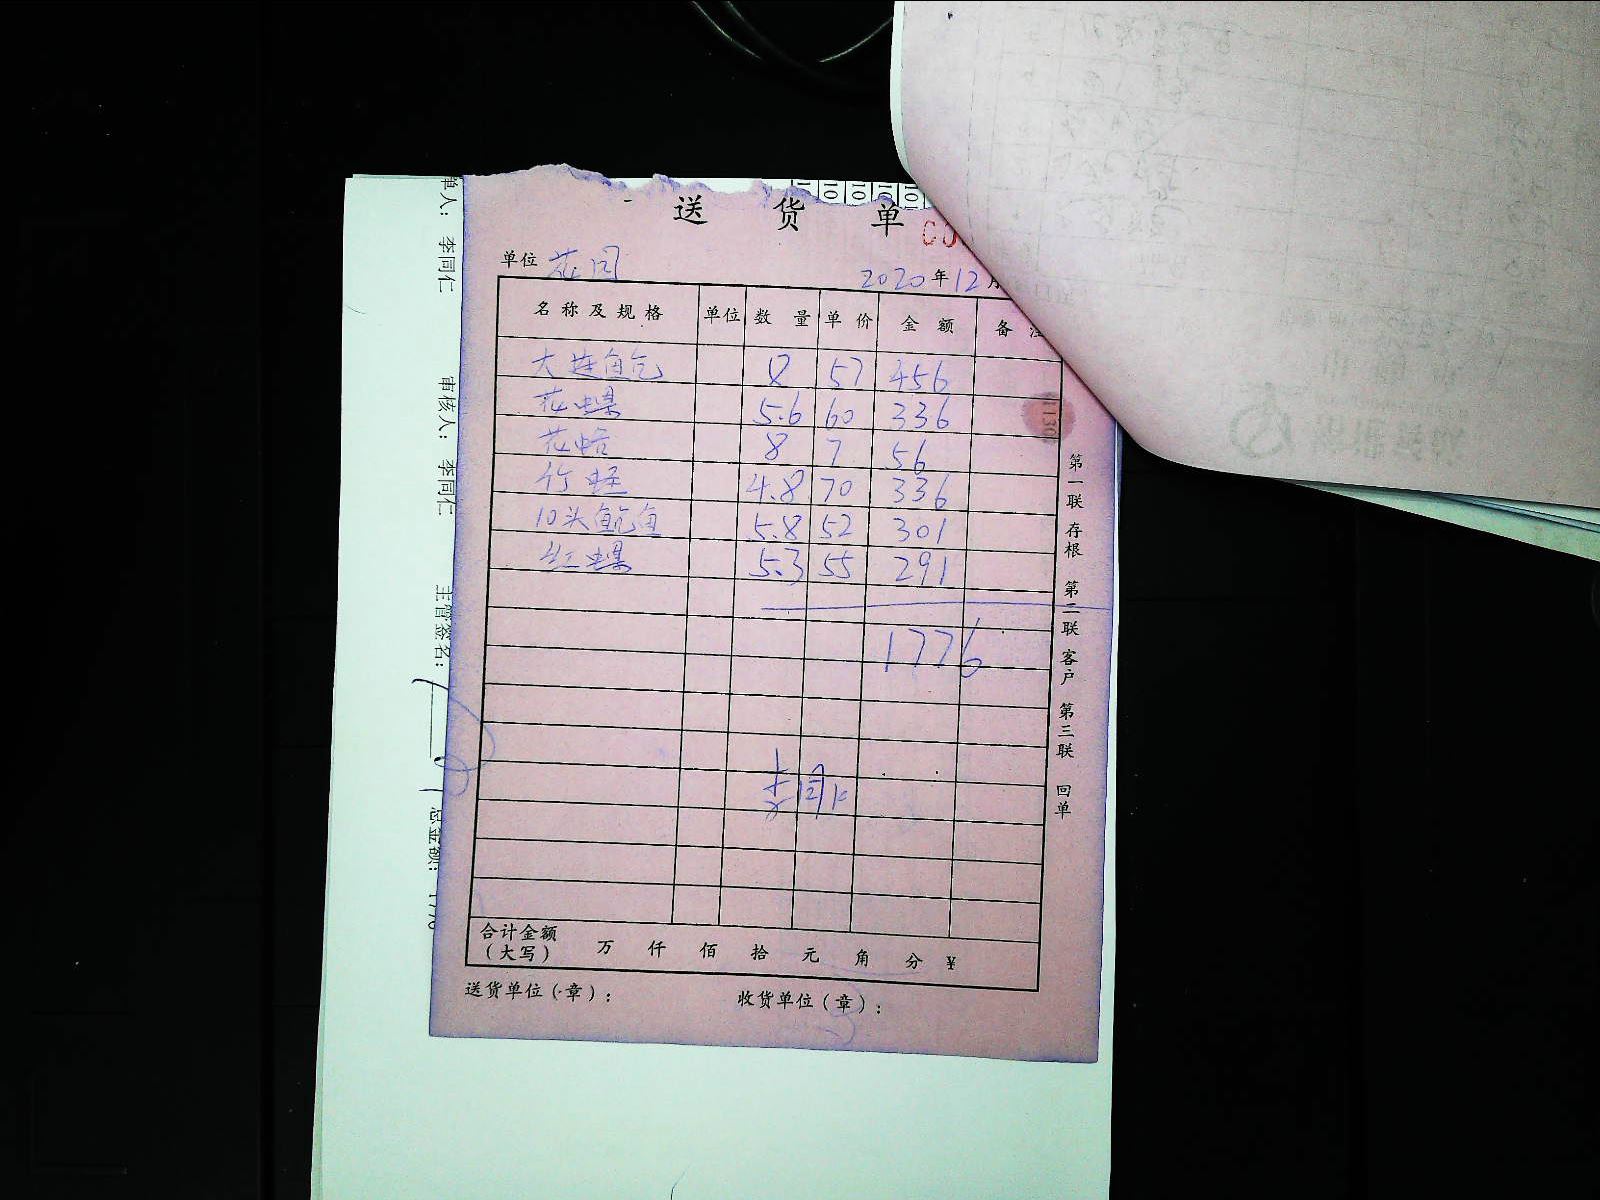 送货单
单位 花园
2020年12月
名称及规格 单位 数量 单价 金额 备注
大连鲍 8 57 456
花螺 5.6 60 336
花蛤 8 7 56
竹蛏 4.8 70 336
10头鲍鱼 5.8 52 301
红螺 5.3 55 291
1776
李同仁
合计金额（大写） 万 仟 佰 拾 元 角 分 ¥
送货单位（章）： 收货单位（章）：
第一联 存根 第二联 客户 第三联 回单
单人： 李同仁 审核人： 李同仁 主管签名： 总金额：